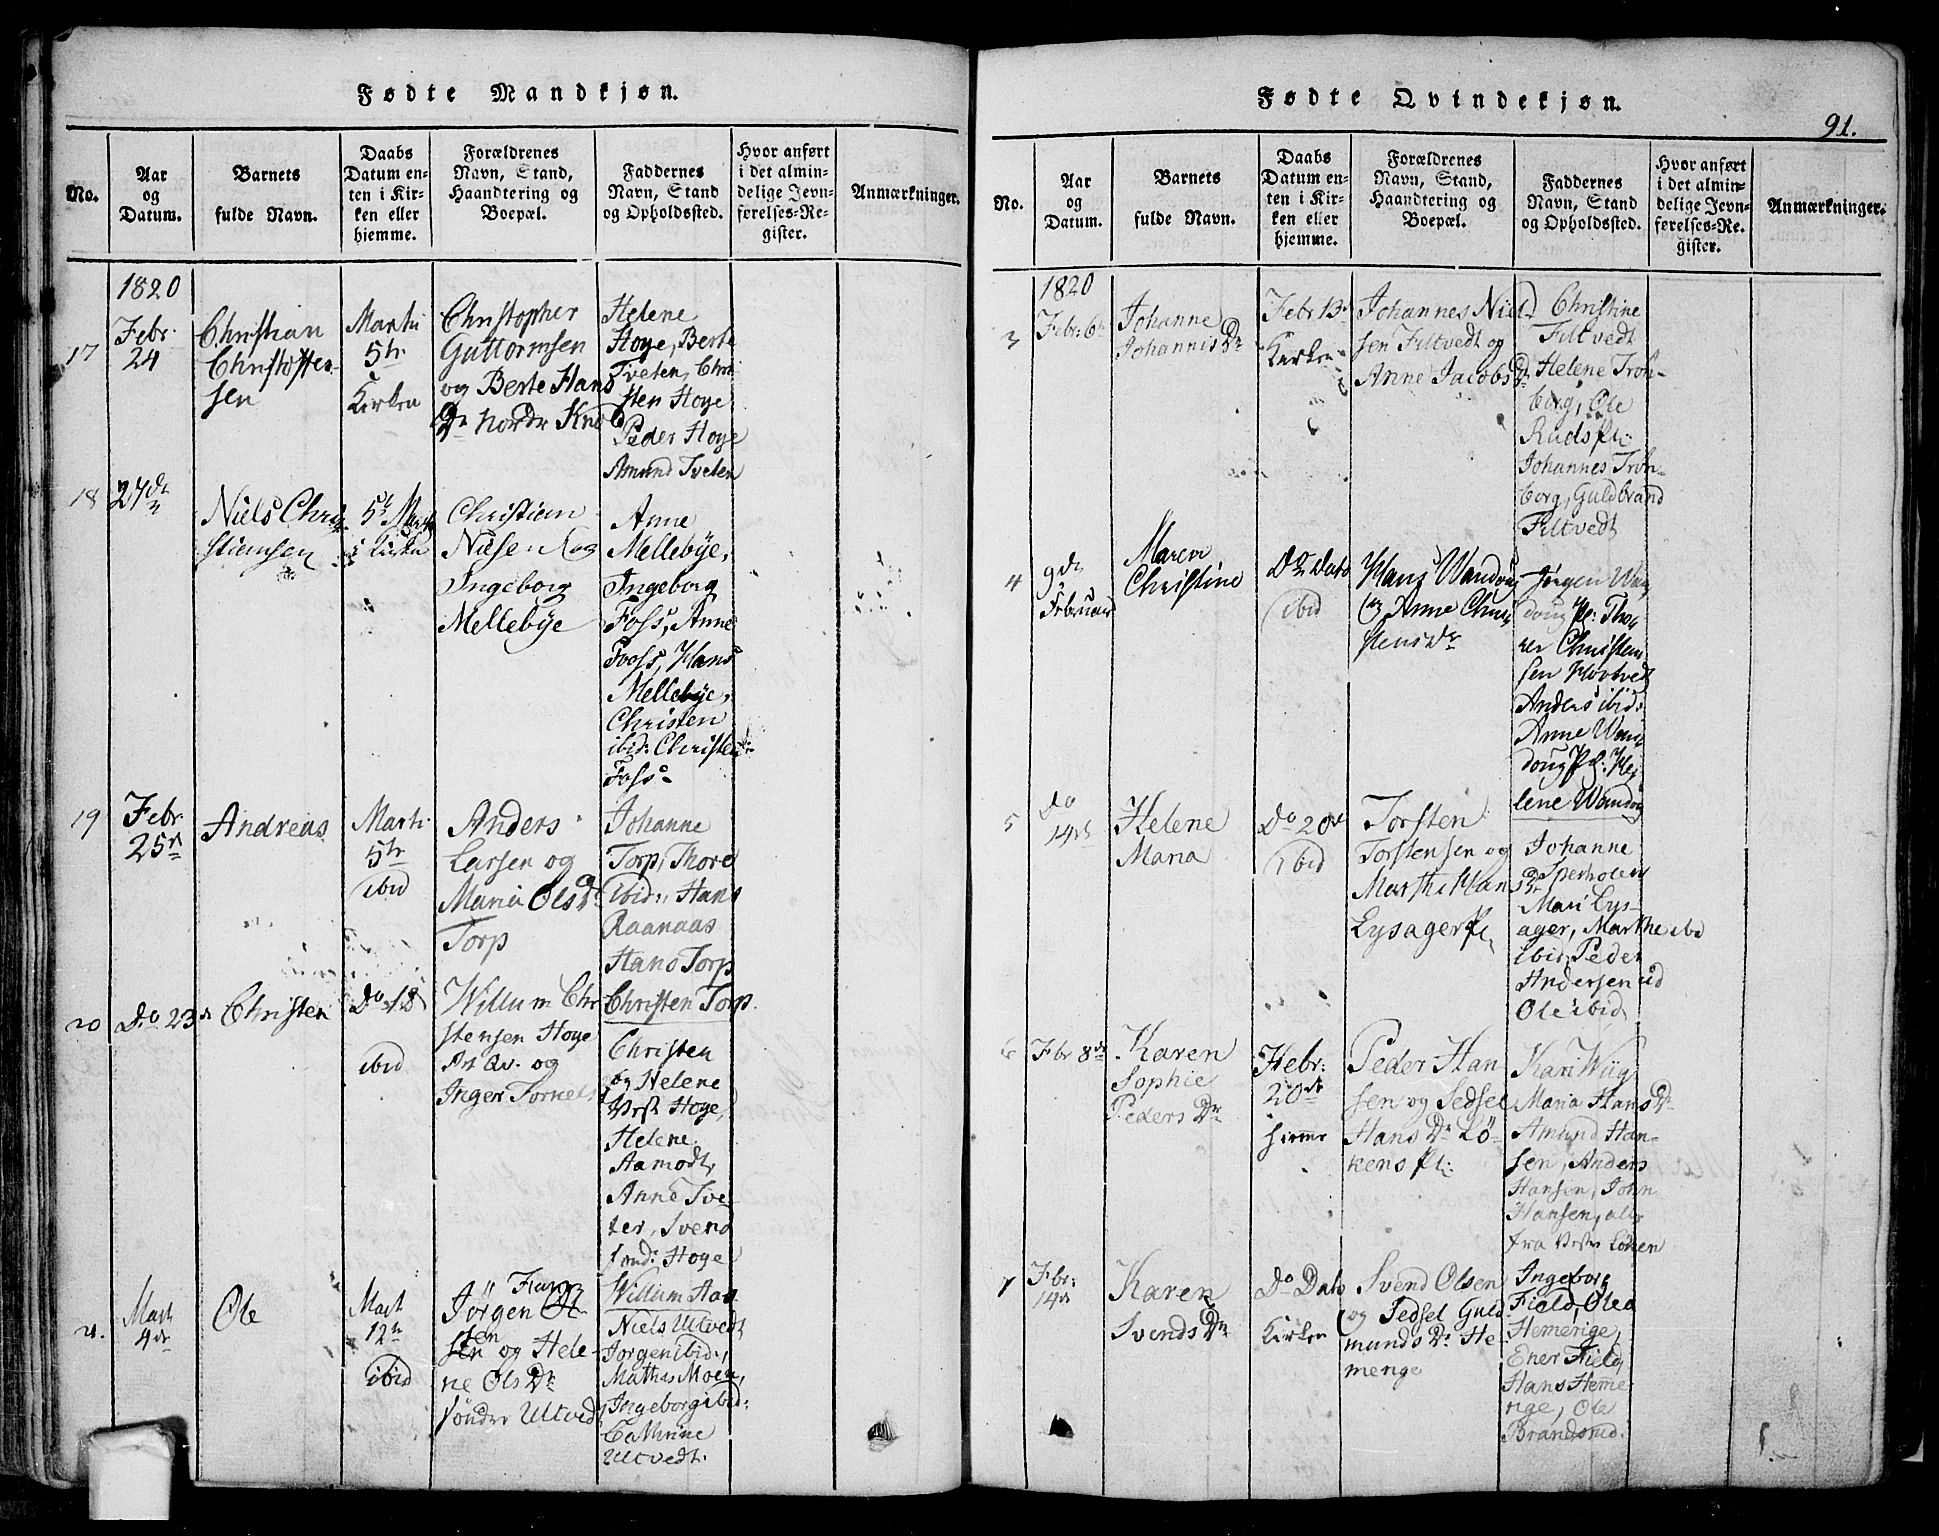 Fødte Mandkjøn.
No.
Aar
og
Datum.
Barnets
fulde Navn.
Daabs
Datum en-
ten i Kir-
ken eller
hjemme.
Forældrenes
Navn, Stand,
Haandtering og
Boepæl.
Faddernes
Navn, Stand
og Opholdssted.
Hvor anført
i det almin-
delige Jevn-
førelses-Re-
gister.
Anmærkninger.
1820
17
Febr.
24
Christian
Christoffer-
sen
Marti
5te
Kirken
Christopher
Guttormsen
og Berte Hans
Dr Nordr
Helene
Hoye, Berte
Tveten, Chri
sten Hoye
Peder Hoye
Amund Tveten
18
27de
Niels Chri
stiansen
5te Marti
i Kirken
Christian
Nielsen og
Ingeborg
Mellebye
Anne
Mellebye,
Ingeborg
Foss, Anne
Foss, Hans
Mellebye,
Christen
ibid: Christen
Foss
19
Febr.
25
Andreas
Marti
5te
ibid
Anders
Larsen og
Maria Ols Dr
Torp
Johanne
Torp, Thore
ibid:, Hans
Raanaas
Hans Torp
Christen Torp.
20
Do 23
Christen
Do
ibid
Willum Chr
stensen Hoye
og
Inger
Christen
og Helene
Vest Hoye,
Helene
Aamodt,
Anne Tve
ter, Svend
Hoye
Willum Haa
21.
Mart
4de
Ole
Mart
12te
ibid
Jørgen Ol
sen og Hele-
ne Ols Dr
søndre Ultved
Niels Utvedt
Jorgen ibid:,
Mathis Moen,
Ingeborg ibid:
Cathrine
Ultvedt.
Fødte Qvindekjøn.
91.
No.
Aar
og
Datum.
Barnets
fulde Navn.
Daabs
Datum en-
ten i Kir-
ken eller
hjemme.
Forældrenes
Navn, Stand,
Haandtering og
Boepæl.
Faddernes
Navn, Stand
og Opholdssted.
Hvor anført
i det almin-
delige Jevn-
førelses-Re-
gister.
Anmærkninger.
1820
3
Febr: 6te
Johanne
Johannis Dr
Febr 13
Kirken
Johannes Niel
sen Filtvedt og
Anne Jacobs Dr
Christine
Filtvedt
Helene Tron-
borg, Ole
Ruds Pl:
Johannes Tron-
borg, Guldbrand
Filtvedt
4
9de
Februar
Maren
Christine
Do Dato
ibid
Hans Wandoug
og Anne Chri
stensdr
Jørgen Wan
doug Pl: Tho
rer Christen
sen Hovtvedt
Anders ibid:
Anne Wan
doug Pl: He
lene Wandoug
5
Do
14de
Helene
Maria
Do 20de
ibid
Torsten
Torstensen og
Marthe Hans Dr
Lysager Pl.
Johanne
Sperholen
Mari Lys-
ager, Marthe ibd
ibid, Peder
Andersen ibid
Ole ibid
6
Fbr 8de
Karen
Sophie
Peders Dr
Febr:
20de
hjemme
Peder Han
sen og Sedsel
Hans Dr Lö-
kens Pl:
Kari Wiig
Maria Hans Dr
Amund Han-
sen, Anders
Hansen, John
Hansen, alle
fra Vestr Löken
7
Fbr:
14de
Karen
Svends Dr
Do Dato
Kirken
Svend Olsen
og Sedsel Guld
munds Dr He
menge
Ingeborg
Field, Olea
Hemerige,
Ener Field,
Hans Heme
rige, Ole
Brandsrud.